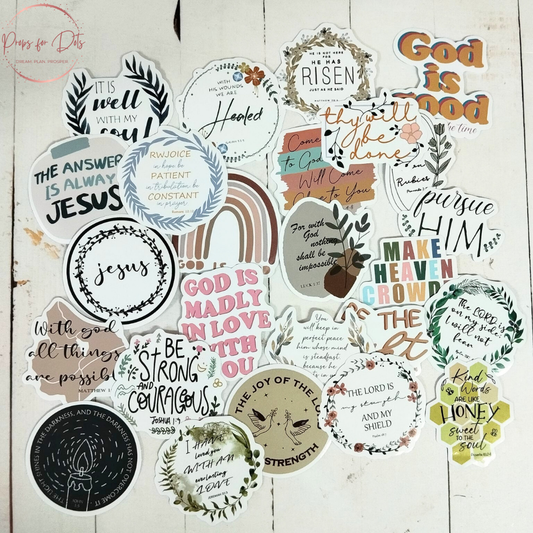 Props for Dots
IT IS
well
WITH MY
soul
WITH
HIS WOUNDS
WE ARE
Healed
HE IS NOT HERE
FOR
HE HAS
RISEN
JUST AS HE SAID
God
is
good
the time
thy will
be
done
THE ANSWER
IS ALWAY
JESUS
RWJOICE
in hope be
PATIENT
in tribulation be
CONSTANT
in prayer
Come
to God
Will Come
Close to You
Rubies
pursue
HIM
jesus
For with
God
nothing
shall be
impossible
MAKE
HEAVEN
CROWDE
GOD IS
MADLY
IN LOVE
WITH
YOU
With god
all things
are possible
MATTHEW
BE
STRONG
AND
COURAGEOUS
JOSHUA 1:9
You will
keep in
perfect peace
him whose mind
is steadfast
because he
THE
The LORD is
on my side
I will
not fear
THE LIGHT SHINES IN THE DARKNESS, AND THE DARKNESS HAS NOT OVERCOME IT
I HAVE
loved you
WITH AN
everlasting
LOVE
THE JOY OF THE LO
STRENGTH
THE LORD IS
my strength
AND MY
SHIELD
Kind
Words
ARE LIKE
HONEY
sweet
TO THE
soul